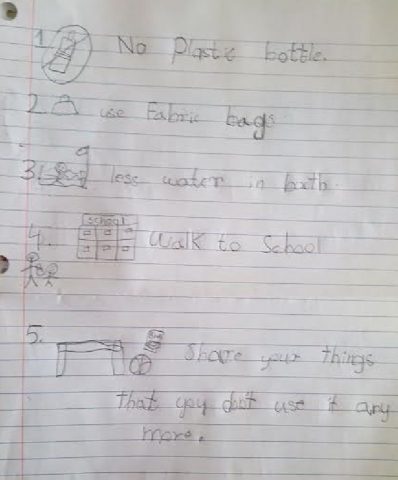 1. No Plastic bottle.
2. use Fabric bags
3. less water in bath.
school
4. Walk to School
5. Share your things
that you don't use it any
more.